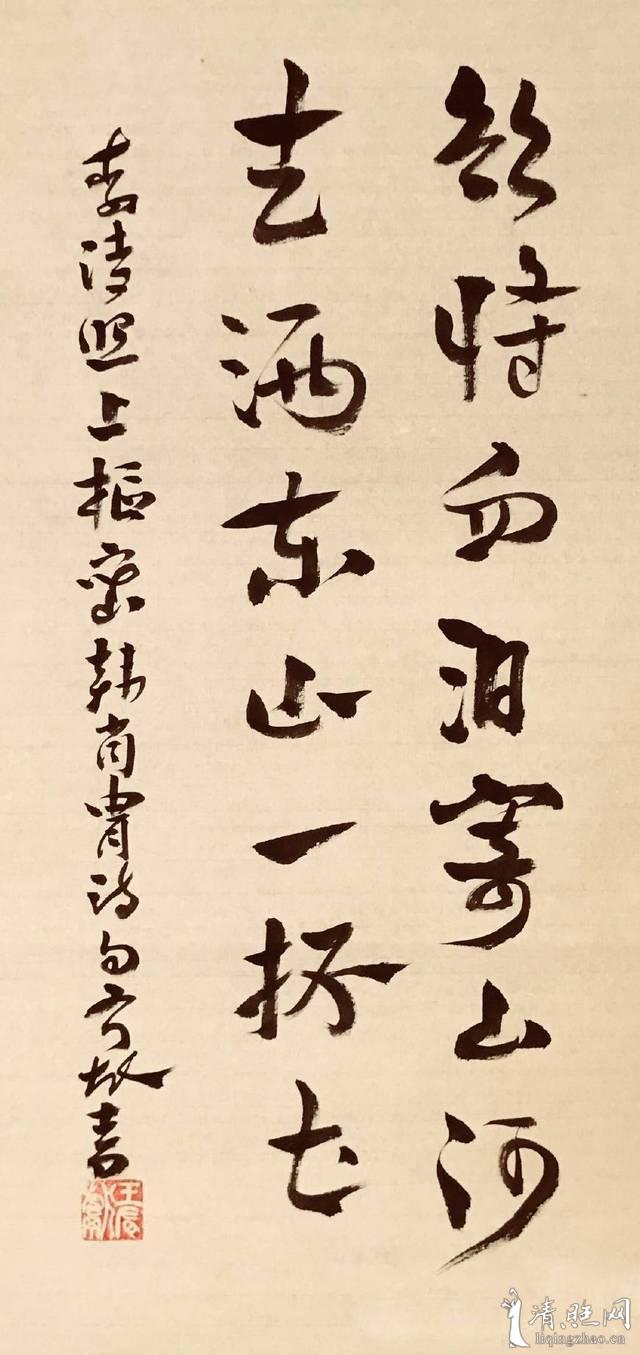 欲将血泪寄山河
去洒东山一抔土
李清照上樞密韩肖胄诗句书
清照网
liqingzhao.cn